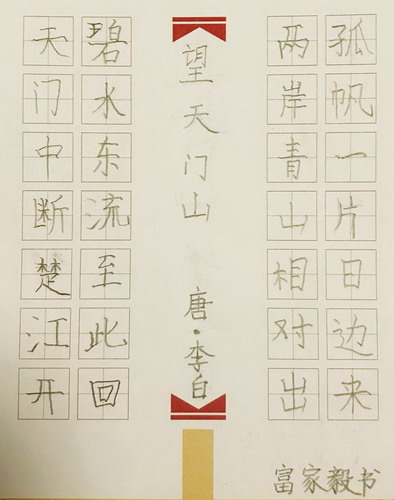 天门中断楚江开
碧水东流至此回
望天门山
唐·李白
两岸青山相对出
孤帆一片日边来
富家毅书